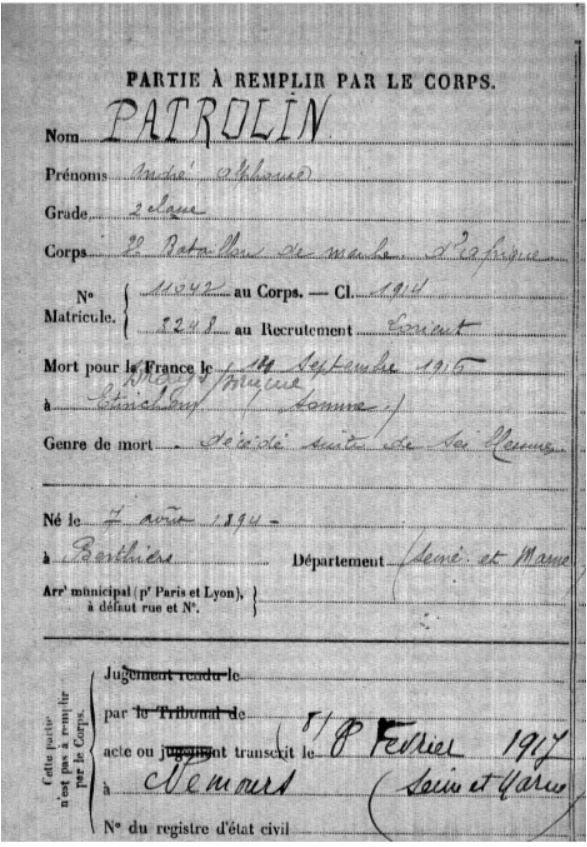 PARTIE À REMPLIR PAR LE CORPS.
Nom PATROLIN
Prénoms André Alphonse
Grade 2 classe
Corps 3e Bataillon de marche d'afrique
No Matricule. 11042 au Corps. — Cl. 1914
8248 au Recrutement Lorient
Mort pour la France le Septembre 1916
à Etinchem (Somme)
Genre de mort décédé suites de ses blessures
Né le 7 août 1894 -
à Département (Seine et Marne)
Arrt municipal (pr Paris et Lyon),
à défaut rue et No.
Cette partie
n'est pas à remplir
par le Corps.
Jugement rendu le
par le Tribunal de
acte ou jugement transcrit le 8 Fevrier 1917
à Nemours (Seine et Marne)
No du registre d'état civil